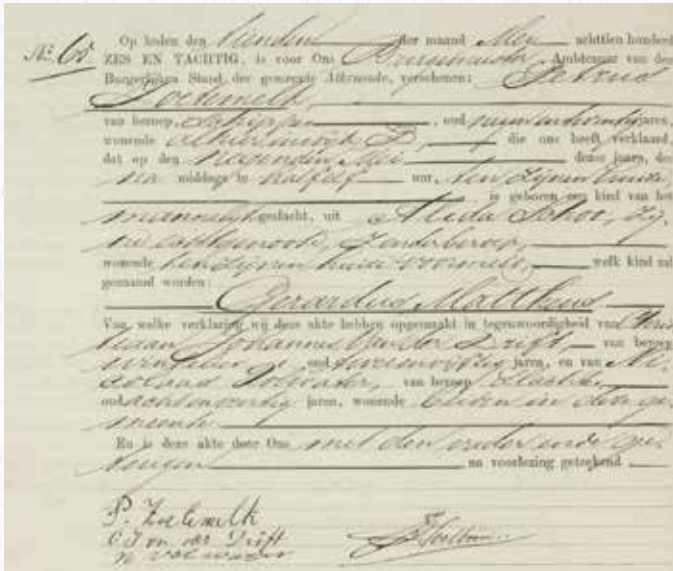 No. 65 Op heden den tienden der maand Mei achttien honderd
ZES EN TACHTIG, is voor Ons Burgemeester Ambtenaar van den
Burgerlijken Stand der gemeente Alkemade, verschenen: Petrus
Zoetemelk,
van beroep, schipper, oud negenentwintig jaren,
wonende alhier in wijk D, die ons heeft verklaard,
dat op den negenden Mei dezes jaars, des
na middags te half elf ure, ten zijnen huize
is geboren een kind van het
mannelijk geslacht, uit Aleida School, zij-
ne echtgenoote, zonder beroep,
wonende ten zijnen huize voormeld, welk kind zal
genaamd worden:
Gerardus Mattheus
Van welke verklaring wij deze akte hebben opgemaakt in tegenwoordigheid van
Johannes van der Drift van beroep
oud jaren, en van Ni-
colaas Volwater, van beroep
oud achtenveertig jaren, wonende beiden in deze ge-
meente
En is deze akte door Ons, met den vader en de ge-
tuigen na voorlezing geteekend
P. Zoetemelk
C J van der Drift
N Volwater